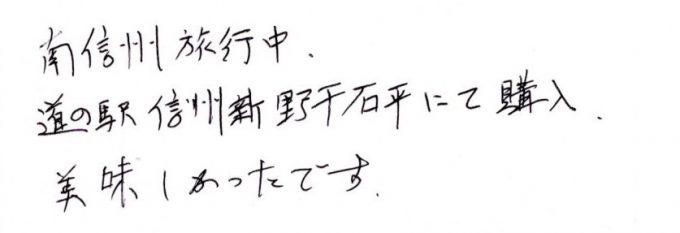 南信州旅行中.
道の駅信州新野千石平にて購入.
美味しかったです.